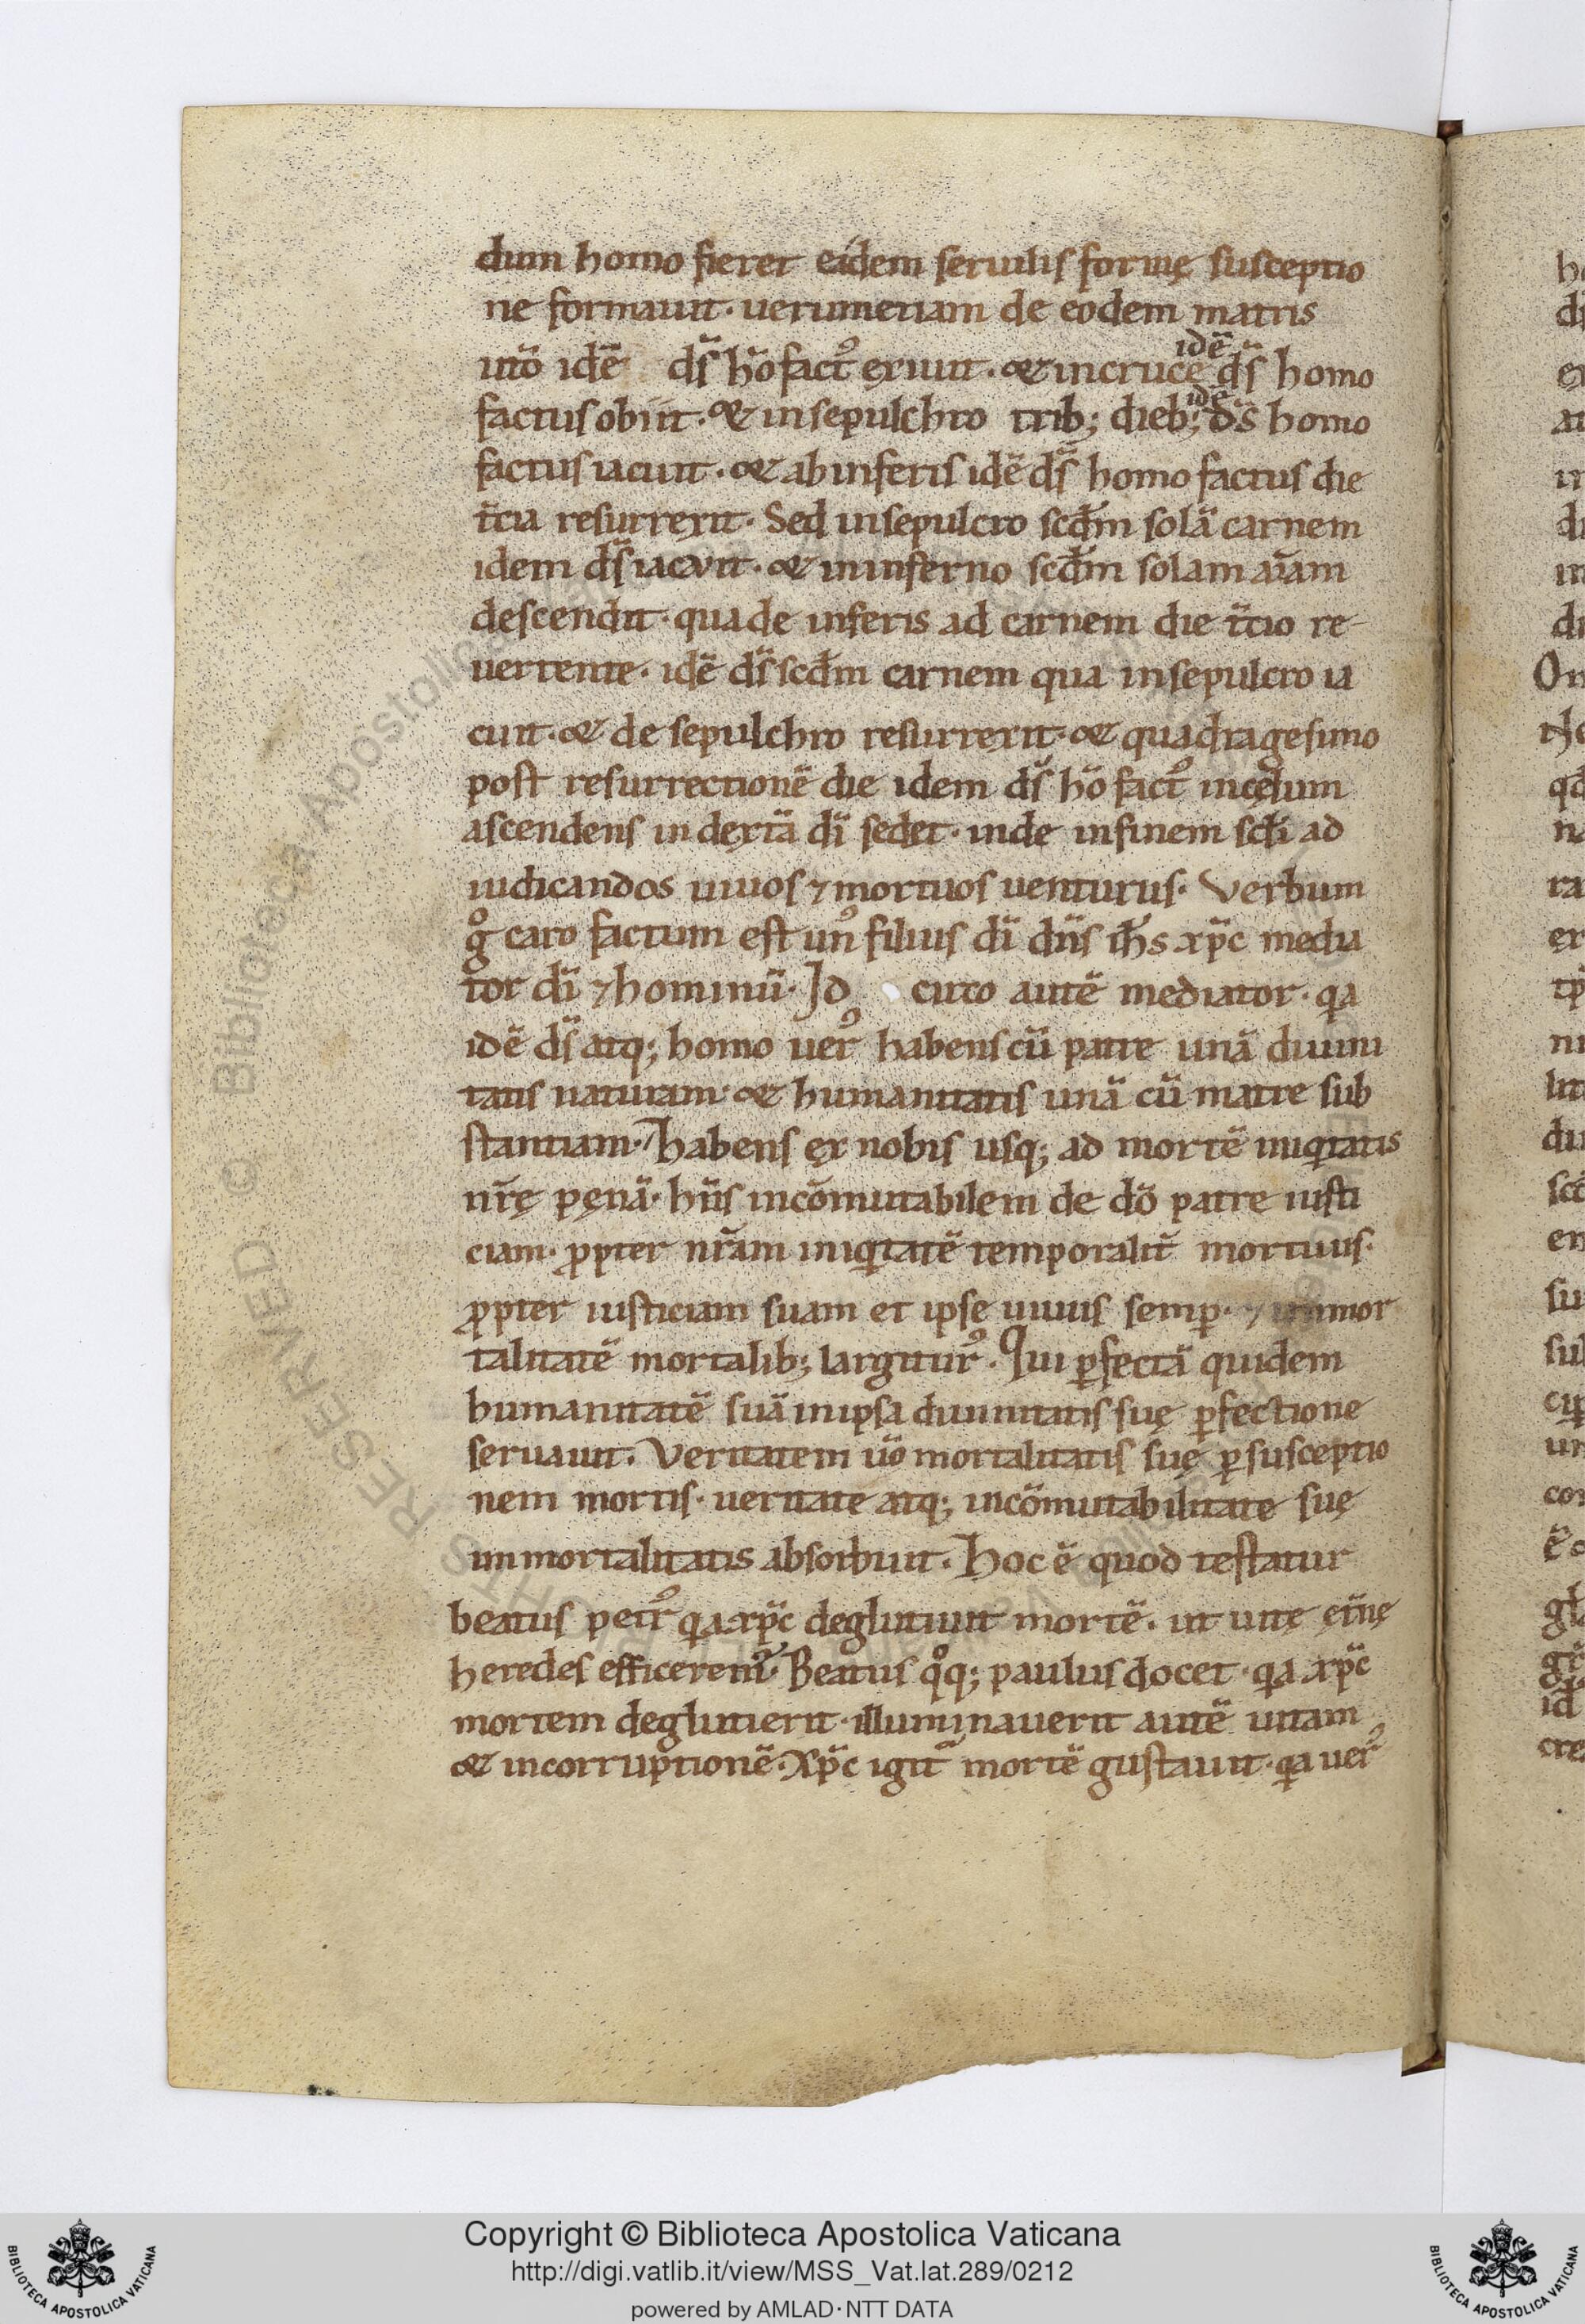 dum homo fieret eidem seruilis formę susceptio
ne formauit· uerumetiam de eodem matris
utō idē ds̄ hō fact᾿ exiuit· & in cruce idē ds̄ homo
factus obiit· & in sepulchro trib; dieb; idē ds̄ homo
factus iacuit· & ab inferis idē ds̄ homo factus die
t̄cia resurrexit· Sed in sepulcro scd̄m solā carnem
idem ds̄ iacuit· & in inferno scd̄m solam aīam
descendit· qua de inferis ad carnem die t̄cio re-
uertente· idē ds̄ scd̄m carnem qua in sepulcro ia
cuit· & de sepulchro resurrexit· & quadragesimo
post resurrectionē die idem ds̄ hō fact᾿ in cęlum
ascendens in dextā dī sedet· inde in finem scl̄i ad
iudicandos uiuos ⁊ mortuos uenturus· Verbum
gͦ caro factum est un᾿ filius dī dn̄s ih̄s xp̄c media
tor dī ⁊ hominū· Id circo autē mediator· qa
idē ds̄ atq; homo uer᾿ habens cū patre unā diuini
tatis naturam· & humanitatis unā cū matre sub
stantiam· Habens ex nobis usq; ad mortē iniqitatis
nr̄ę pęnā· hn̄s incōmutabilem de dō patre iusti
ciam· ꝓpter nr̄am iniqitatē temporalit̄ mortuus·
ꝓpter iusticiam suam et ipse uiuus semꝑ· ⁊ inmor
talitatē mortalib; largitur᾿· Qui ꝑfectā quidem
humanitatē suā in ipsa diuinitatis suę ꝑfectione
seruauit· Veritatem ūo mortalitatis suę ꝑ susceptio
nem mortis· ueritate atq; incōmutabilitate suę
inmortalitatis absorbuit· Hoc ē quod testatur
beatus petr᾿ qa xp̄c deglutiuit mortē· ut uitę et̄nę
heredes efficerem᾿· Beatus qͦq; paulus docet· qa xp̄c
mortem deglutierit· illuminauerit autē uitam
& incorruptionē· Xp̄c igit᷑ mortē gustauit· qa uer᾿
Copyright © Biblioteca Apostolica Vaticana
http://digi.vatlib.it/view/MSS_Vat.lat.289/0212
powered by AMLAD·NTT DATA
BIBLIOTECA APOSTOLICA VATICANA
BIBLIOTECA APOSTOLICA VATICANA